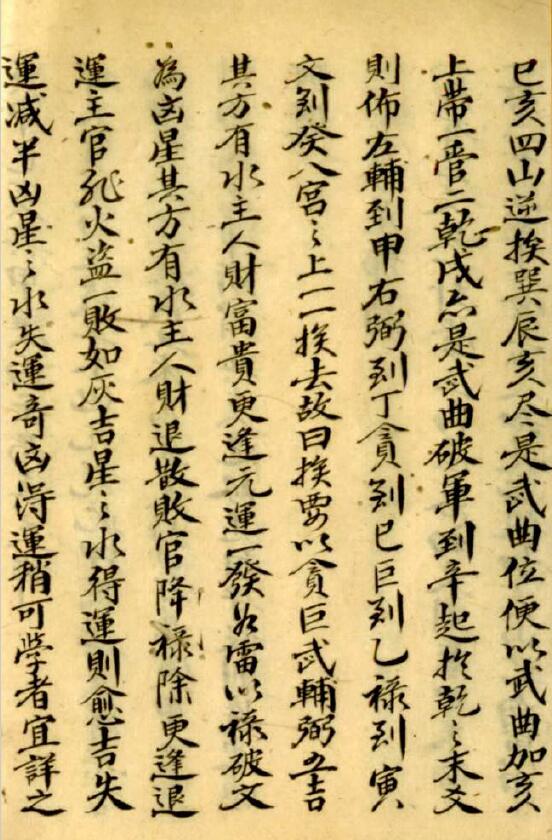 巳亥四山逆挨巽辰亥尽是武曲位便以武曲加亥
上帶一管三乾戌亦是武曲破軍到辛起扵乾之末爻
則佈左輔到申右弼到丁貪到巳巨到乙祿到寅
文到癸八宮之上一一挨去故曰挨要以貪巨武輔弼五吉
其方有水主人財富貴更逢元運一發如雷以祿破文
為凶星其方有水主人財退散敗官降祿除更逢退
運主官非火盜一敗如灰吉星之水得運則愈吉失
運减半凶星之水失運奇凶得運稍可學者宜詳之